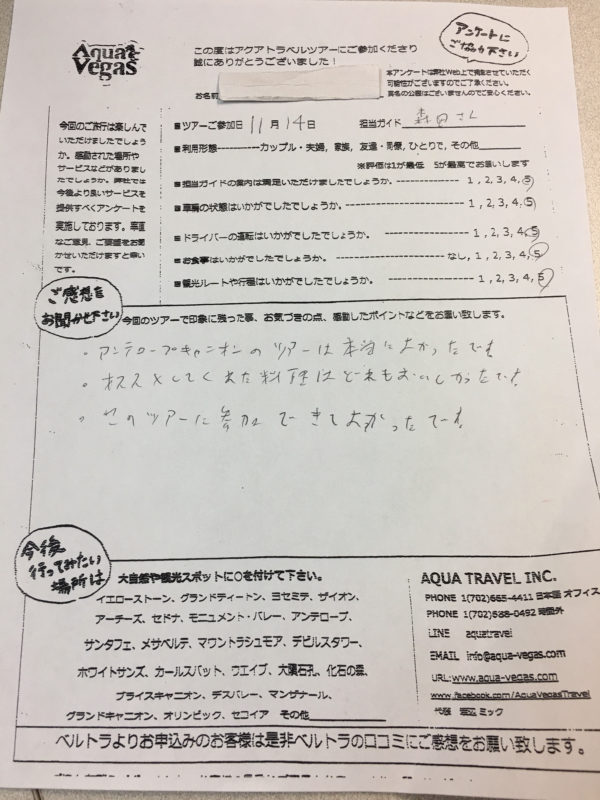 Aqua Vegas
この度はアクアトラベルツアーにご参加くださり
誠にありがとうございました！
アンケートに
ご協力下さい
本アンケートは弊社Web上で掲載させていただく
可能性がございますのでご了承ください。
お名前
実名の公開はございませんのでご安心ください。
今回のご旅行は楽しんで
いただけましたでしょう
か。感動された場所や
サービスなどがありまし
たでしょうか。弊社では
今後より良いサービスを
提供すべくアンケートを
実施しております。率直
なご意見、ご要望をお聞
かせいただけますと幸い
です。
■ツアーご参加日 11月14日 担当ガイド 森田さん
■利用形態-----------カップル・夫婦, 家族, 友達・同僚, ひとりで, その他
※評価は1が最低 5が最高でお願いします
■担当ガイドの案内は満足いただけましたでしょうか。 1, 2, 3, 4, 5
■車輛の状態はいかがでしたでしょうか。 1, 2, 3, 4, 5
■ドライバーの運転はいかがでしたでしょうか。 1, 2, 3, 4, 5
■お食事はいかがでしたでしょうか。 なし, 1, 2, 3, 4, 5
■観光ルートや行程はいかがでしたでしょうか。 1, 2, 3, 4, 5
ご感想を
お聞かせ下さい
今回のツアーで印象に残った事、お気づきの点、感動したポイントなどをお願い致します。
・アンテロープキャニオンのツアーは本当によかったです
・オススメしてくれた料理はどれもおいしかったです
・このツアーに参加できてよかったです
今後
行ってみたい
場所は
大自然や観光スポットに○を付けて下さい。
イエローストーン、グランドティートン、ヨセミテ、ザイオン、
アーチーズ、セドナ、モニュメント・バレー、アンテロープ、
サンタフェ、メサベルテ、マウントラシュモア、デビルスタワー、
ホワイトサンズ、カールスバット、ウエイブ、大隕石孔、化石の森、
ブライスキャニオン、デスバレー、マンザナール、
グランドキャニオン、オリンピック、セコイア その他
AQUA TRAVEL INC.
PHONE 1(702)665-4411 日本語 オフィス
PHONE 1(702)588-0492 時間外
LINE aquatravel
EMAIL info@aqua-vegas.com
URL:www.aqua-vegas.com
www.facebook.com/AquaVegasTravel
代表 渡辺 ミック
ベルトラよりお申込みのお客様は是非ベルトラの口コミにご感想をお願い致します。